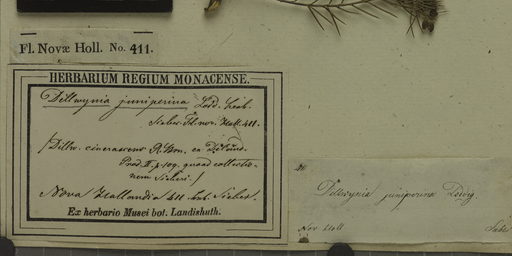 Fl. Novæ Holl. No. 411.
HERBARIUM REGIUM MONACENSE.
Dillwynia juniperina Lodd.
Sieber Fl. nov. Holl. 411.
(Dillw. cinerascens R. Brn. ex
Prod. II. p. 109. quoad collectio-
nem Sieberi.)
Nova Hollandia 411. Sieber.
Ex herbario Musei bot. Landishuth.
Dillwynia juniperina
Nov Holl